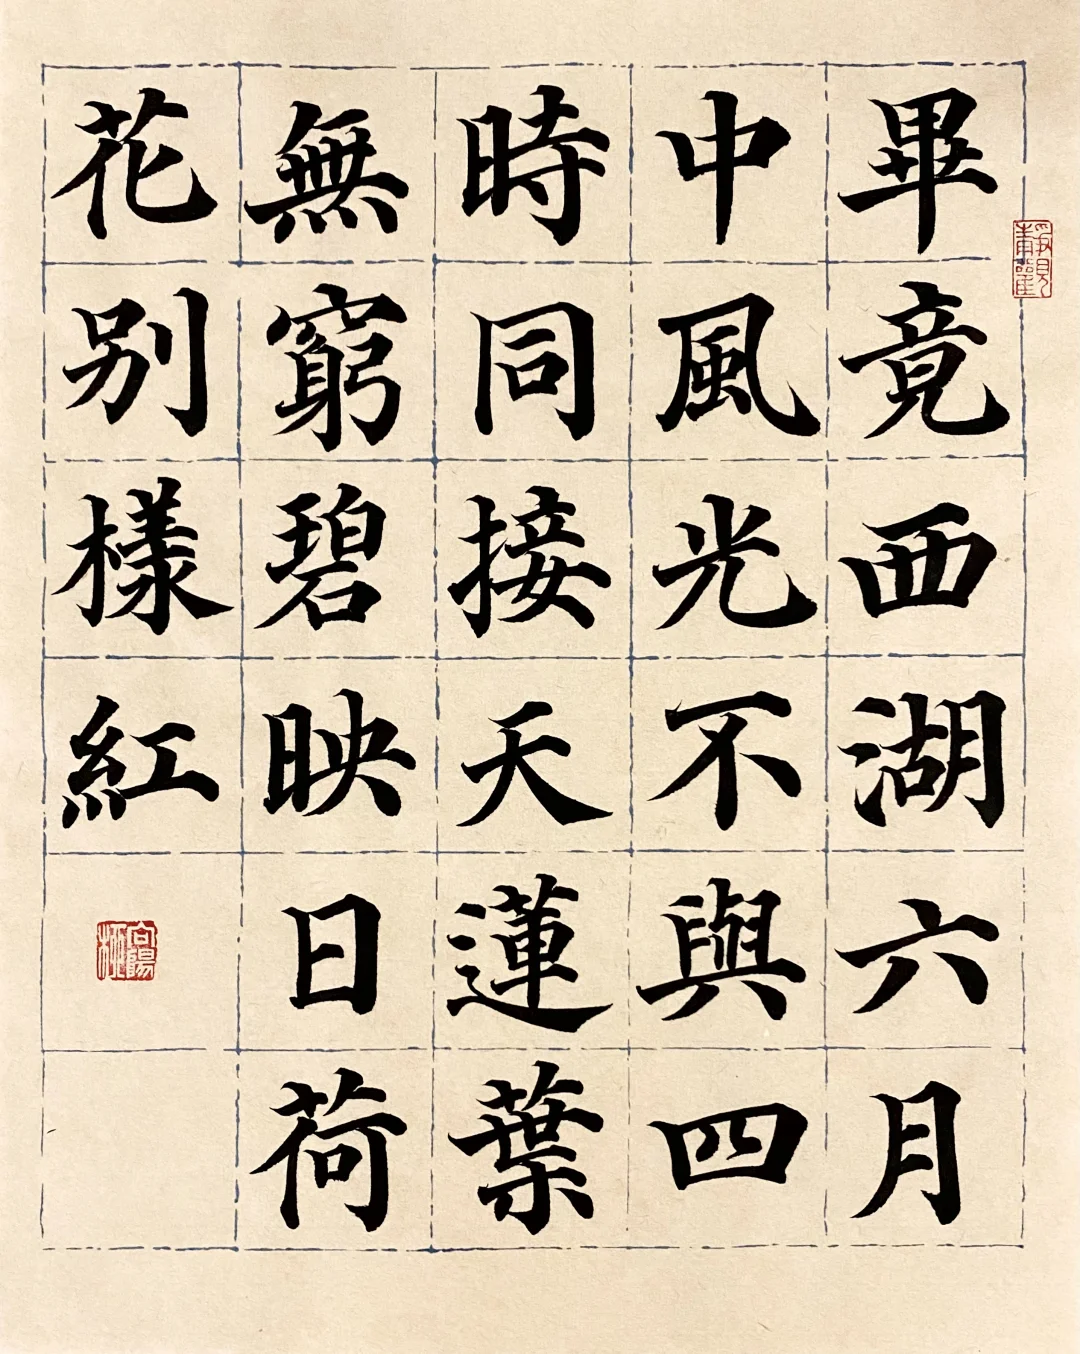 畢竟西湖六月
中風光不與四
時同接天蓮葉
無窮碧映日荷
花别樣紅
靜觀